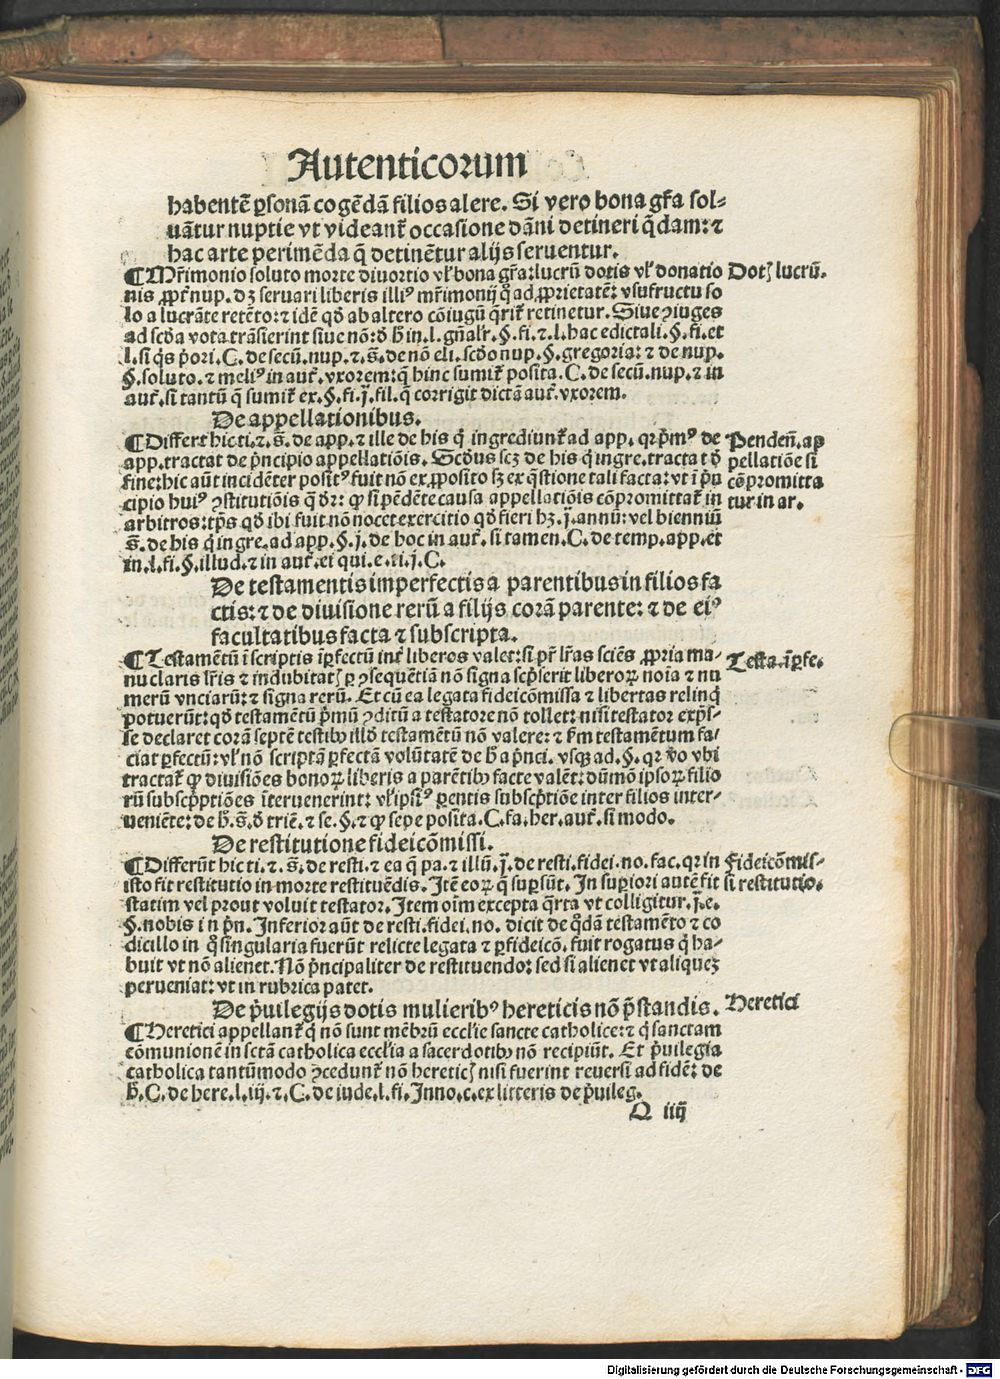 Autenticorum
habentē ꝑsonā cogēdā filios alere. Si vero bona gr̄a sol⸗
uātur nuptie vt videant᷑ occasione dāni detineri q̄dam: ⁊
hac arte perimēda q̄ detinētur alijs seruentur.
¶ Mr̄imonio soluto morte diuortio vl̓ bona gr̄a: lucrū dotis vl̓ donatio
Dotꝭ lucrū.
nis ꝓpt᷑ nup. dꝫ seruari liberis illiꝰ mr̄imonij qͦ ad ꝓprietatē: vsufructu so
lo a lucrāte retēto: ⁊ idē qd̓ ab altero cōiugū q̄rit᷑ retinetur. Siue ꝯiuges
ad scd̓a vota trāsierint siue nō: d̓ h̓ in. l. gn̄alr̓. §. fi. ⁊. l. hac edictali. §. fi. et
l. si q̇s p̓ori. C. de secū. nup. ⁊. s̄. de nō eli. scd̓o nup. §. gregoria: ⁊ de nup.
§. soluto. ⁊ meliꝰ in aut̓. vxorem: q̄ hinc sumit᷑ posita. C. de secū. nup. ⁊ in
aut̓. si tantū q̄ sumit᷑ ex. §. fi. j̄. fil. q̄ corrigit dictā aut̓. vxorem.
De appellationibus.
¶ Differt hic ti. ⁊. s̄. de app. ⁊ ille de his q̇ ingrediunt᷑ ad app. qꝛ p̓mꝰ de
Pendeñ. ap
app. tractat de p̓ncipio appellatiōis. Scd̓us scꝫ de his q̇ ingre. tractat d̓
pellatiōe si
fine: hic aut̄ incidēter positꝰ fuit nō ex ꝓposito sꝫ ex q̄stione tali facta: vt ī p̓n
cōpromitta
cipio huiꝰ ꝯstitutiōis q̄ d̓r: ꝙ si pēdēte causa appellatiōis cōpromittat᷑ in
tur in ar.
arbitros: tp̄s qd̓ ibi fuit nō nocet exercitio qd̓ fieri hꝫ. j̄. annū: vel bienniū
s̄. de his q̇ ingre. ad app. §. j. de hoc in aut̓. si tamen. C. de temp. app. et
in. l. fi. §. illud. ⁊ in aut̓. ei qui. e. ti. j̄. C.
De testamentis imperfectis a parentibus in filios fa
ctis: ⁊ de diuisione rerū a filijs corā parente: ⁊ de eiꝰ
facultatibus facta ⁊ subscripta.
¶ Testamētū ī scriptis īꝑfectū int̓ liberos valet: si pr̄ lr̄as sciēs ꝓpria ma⸗
Testa. īꝑfe.
nu claris lr̄is ⁊ indubitatꝭ ꝑ ꝯsequētiā nō signa scp̓serit liberoꝝ noīa ⁊ nu
merū vnciarū: ⁊ signa rerū. Et cū ea legata fideicōmissa ⁊ libertas relinq̇
potuerūt: qd̓ testamētū p̓mū ꝯditū a testatore nō tollet: nisi testator exp̄s⸗
se declaret corā septē testibꝰ illd̓ testamētū nō valere: ⁊ fm testamētum fa⸗
ciat ꝑfectū: vl̓ nō scriptā ꝑfectā volūtatē de h̓ a p̓nci. vsqꝫ ad. §. qꝛ vo̓ vbi
tractat᷑ ꝙ diuisiōes bonoꝝ liberis a parētibꝰ facte valēt: dūmō ipsoꝝ filio
rū subscp̓ptiōes īteruenerint: vl̓ ipsiꝰ ꝑentis subscp̓tiōe inter filios inter⸗
ueniēte: de h̓. s̄. d̓ triē. ⁊ se. §. ⁊ ꝙ sepe posita. C. fa. her. aut̓. si modo.
De restitutione fideicōmissi.
¶ Differūt hic ti. ⁊. s̄. de resti. ⁊ ea q̄ pa. ⁊ illū. j̄. de resti. fidei. no. fac. qꝛ in
Fideicōmis⸗
isto fit restitutio in morte restituēdis. Itē eoꝝ q̄ suꝑsūt. In suꝑiori autē fit
si restitutio.
statim vel prout voluit testator. Item oīm excepta q̄rta vt colligitur. j̄. e.
§. nobis in pn̄. Inferior aūt de resti. fidei. no. dicit de qͦdā testamēto ⁊ co
dicillo in qͦ singularia fuerūt relicte legata ⁊ ꝑ fideicō. fuit rogatus q̇ ha⸗
buit vt nō alienet. Nō p̓ncipaliter de restituendo: sed si alienet vt aliquez
perueniat: vt in rubrica patet.
De p̓uilegijs dotis mulieribꝰ hereticis nō p̄standis.
Heretici
¶ Heretici appellant᷑ q̇ nō sunt mēbrū eccl̓ie sancte catholice: ⁊ q̇ sanctam
cōmunionē in sctā catholica eccl̓ia a sacerdotibꝰ nō recipiūt. Et p̓uilegia
catholica tantūmodo ꝯcedunt᷑ nō hereticꝭ nisi fuerint reuersi ad fidē: de
h̓. C. de here. l. iij. ⁊. C. de iude. l. fi. Inno. c. ex litteris de p̓uileg.
Q iiij
Digitalisierung gefördert durch die Deutsche Forschungsgemeinschaft - DFG